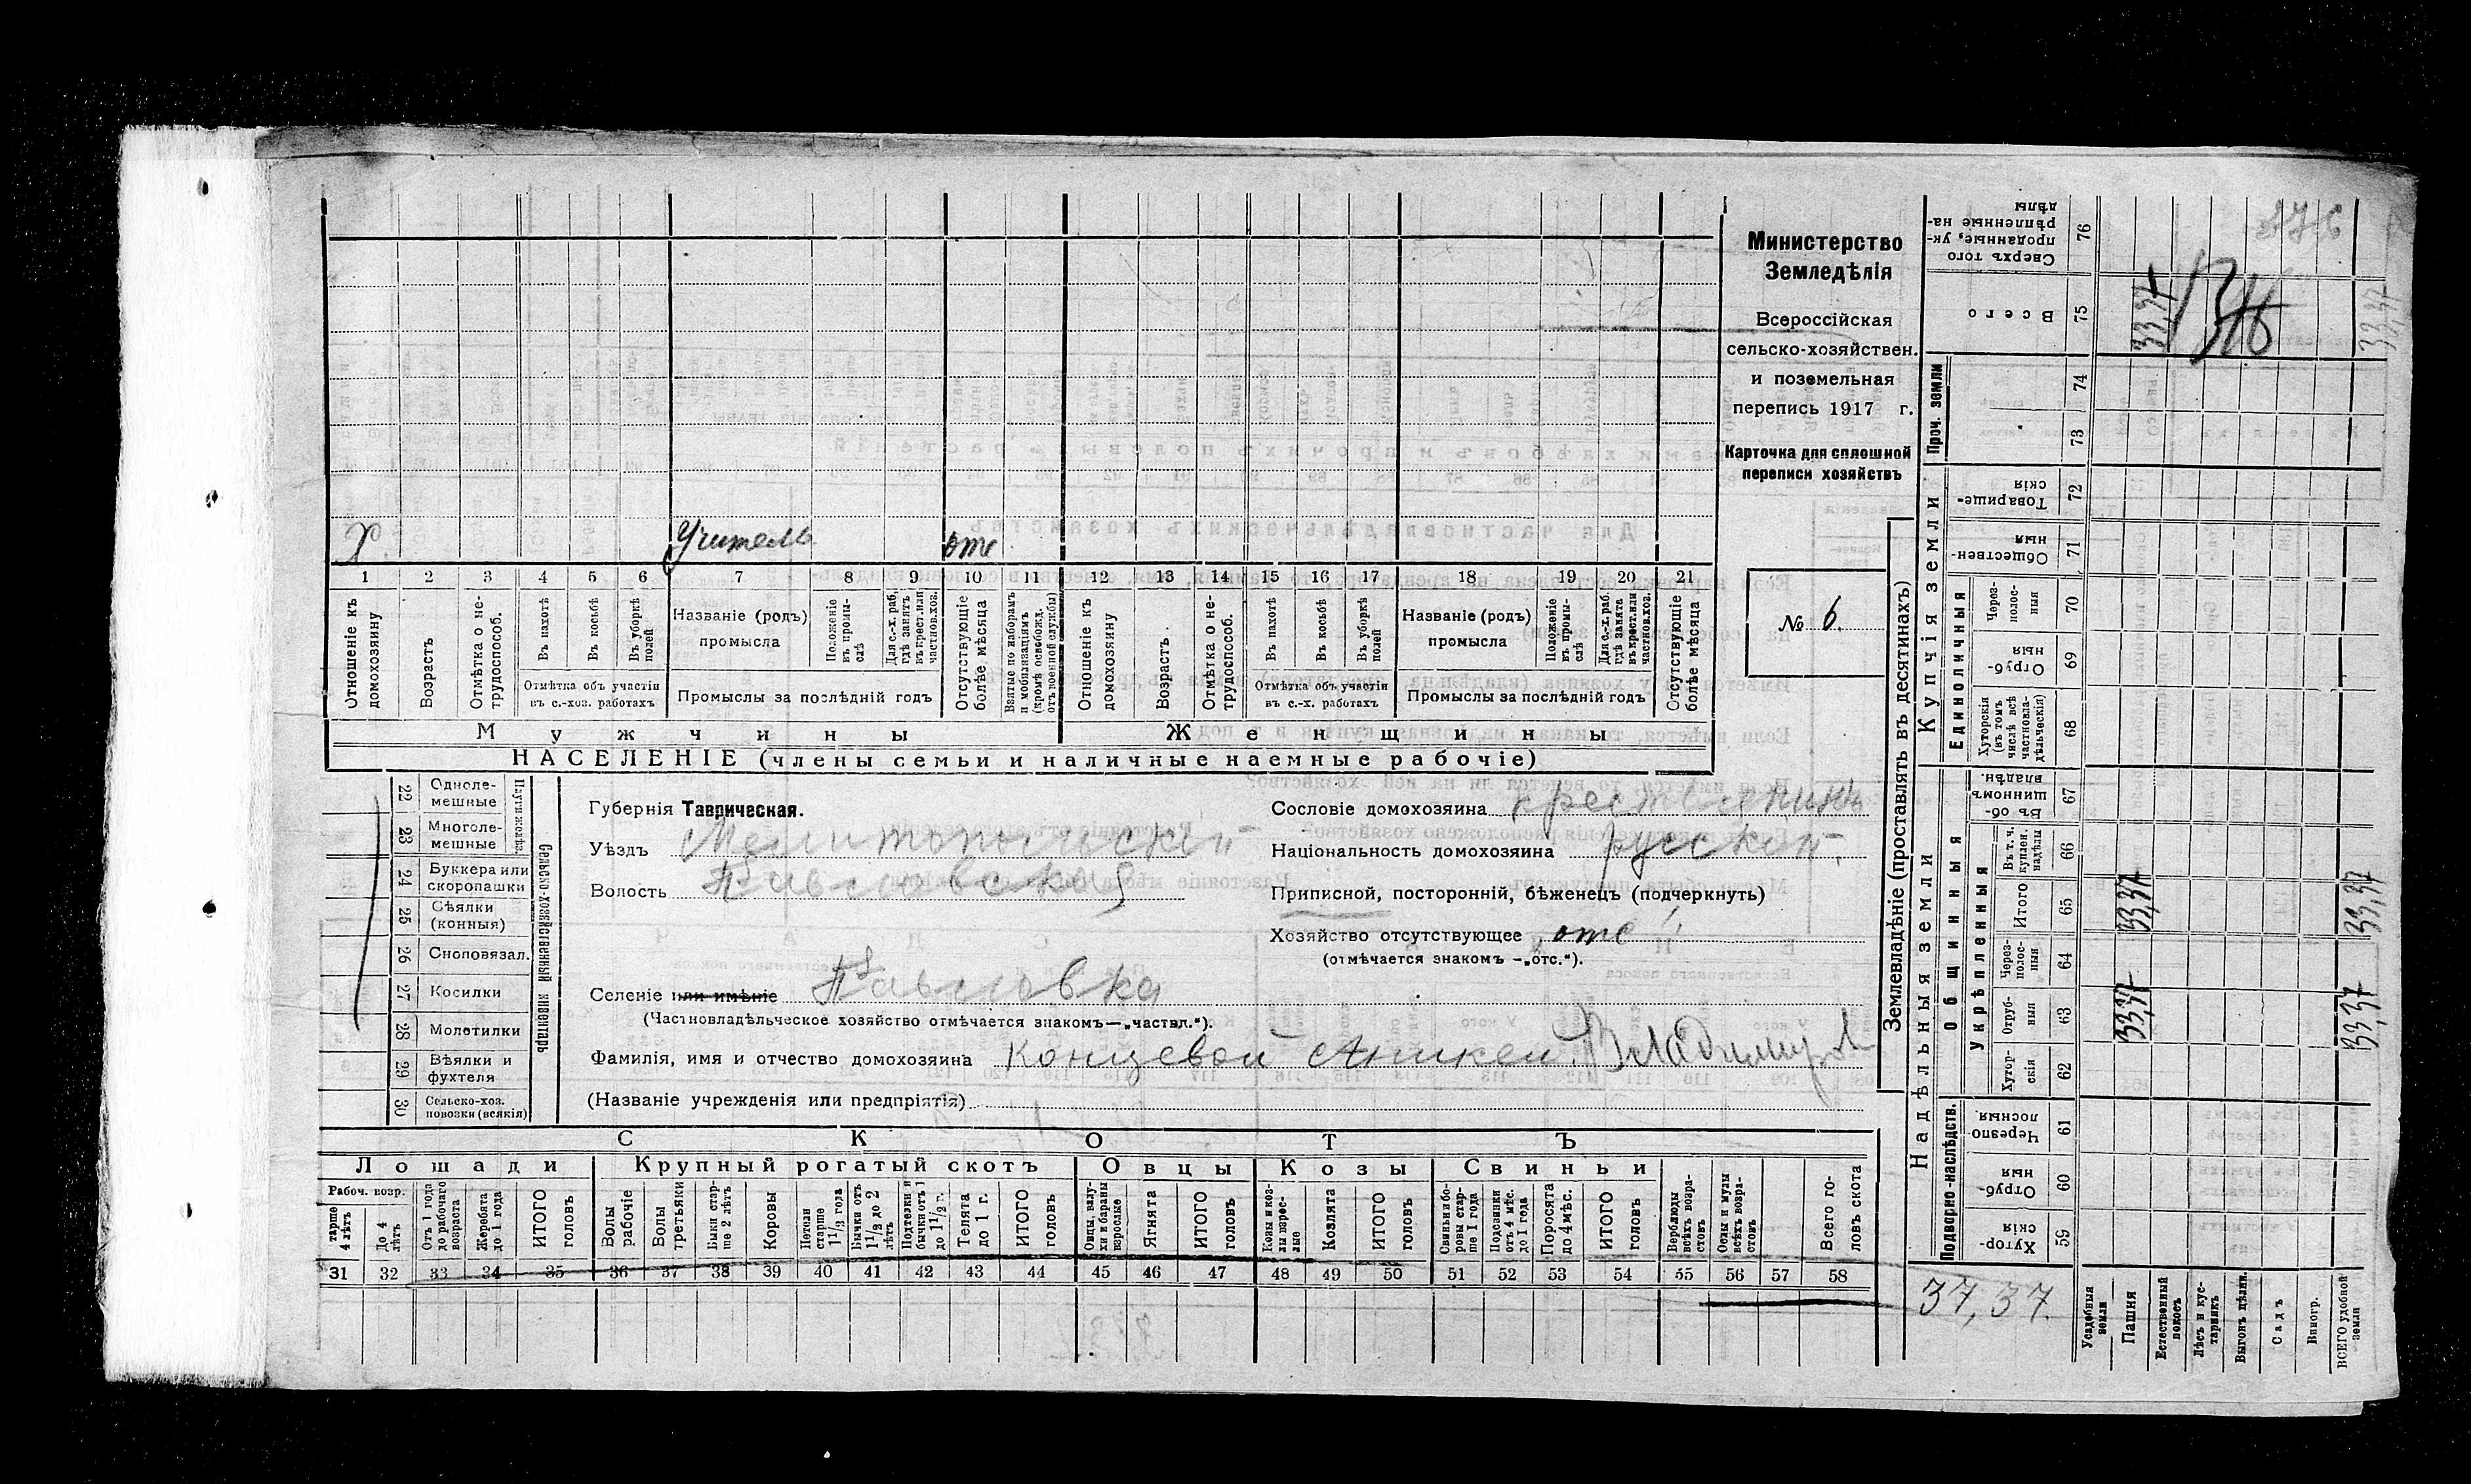 Х Учитель отс
1 2 3 4 5 6 7 8 9 10 11 12 13 14 15 16 17 18 19 20 21
Отношеніе къ домохозяину
Возрастъ
Отмѣтка о нетрудоспособ.
Въ пахотѣ
Въ косьбѣ
Въ уборкѣ полей
Отмѣтка объ участіи
въ с.-хоз. работахъ
Названіе (родъ)
промысла
Положеніе въ промыслѣ
Для с.-х. раб, гдѣ занятъ въ крест. или частнов. хоз.
Промыслы за послѣдній годъ
Отсутствующіе болѣе мѣсяца
Взятые по наборамъ и мобилизаціямъ (кромѣ освобожд. отъ военной службы)
Отношеніе къ домохозяину
Возрастъ.
Отмѣтка о нетрудоспособ.
Въ пахотѣ
Въ косьбѣ
Въ уборкѣ полей
Отмѣтка объ участіи
въ с.-х. работахъ
Названіе (родъ)
промысла
Положеніе въ промыслѣ
Для с.-х. раб. гдѣ занята въ крест. или частнов. хоз.
Промыслы за послѣдній годъ
Отсутствующіе болѣе мѣсяца
Мужчины Женщины
НАСЕЛЕНІЕ (члены семьи и наличные наемные рабочіе)
Министерство
Земледѣлія
Всероссійская
сельско-хозяйствен.
и поземельная
перепись 1917 г.
Карточка для сплошной
переписи хозяйствъ
№ 6.
22 Одноле-
мешные
23 Многоле-
мешные
24 Буккера или
скоропашки
25 Сѣялки
(конныя)
26 Сноповязал.
27 Косилки
28 Молотилки
29 Вѣялки и
фухтеля
30 Сельско-хоз.
повозки (всякія)
Сельско-хозяйственный инвентарь
Губернія Таврическая.
Уѣздъ Мелитопольскій
Волость Павловская
Селеніе или имѣніе Павловка
(Частновладѣльческое хозяйство отмѣчается знакомъ—„частвл.“).
Фамилія, имя и отчество домохозяина Концевой Аникей Владимиров
(Названіе учрежденія или предпріятія)
Сословіе домохозяина крестьянинъ
Національность домохозяина русскій.
Приписной, посторонній, бѣженецъ (подчеркнуть)
Хозяйство отсутствующее отс
(отмѣчается знакомъ -„отс.“).
СКОТЪ
Лошади Крупный рогатый скотъ Овцы Козы Свиньи
Рабоч. возр.
старше 4 лѣтъ
До 4 лѣтъ
Отъ 1 года до рабочаго возраста
Жеребята до 1 года
ИТОГО головъ
Волы рабочіе
Волы третьяки
Быки старше 2 лѣтъ
Коровы
Нетели старше 1½ года
Бычки отъ 1½ до 2 лѣтъ
Подтелки и бычки отъ 1 до 1½ г.
Телята до 1 г.
ИТОГО головъ
Овцы, валухи и бараны взрослые
Ягнята
ИТОГО головъ
Козы и козлы взрослые
Козлята
ИТОГО головъ
Свиньи и боровы старше 1 года
Подсвинки отъ 4 мѣс. до 1 года
Поросята до 4 мѣс.
ИТОГО головъ
Верблюды всѣхъ возрастовъ
Ослы и мулы всѣхъ возрастовъ
Всего головъ скота
31 32 33 34 35 36 37 38 39 40 41 42 43 44 45 46 47 48 49 50 51 52 53 54 55 56 57 58
37,37.
Землевладѣніе (проставлять въ десятинахъ)
Сверхъ того проданные, укрѣпленные надѣлы 76
Всего 75 33,37 33,37
Проч. земли 74
73
Купчія земли
Товарищескія 72
Общественныя 71
Единоличныя
Черезполосныя 70
Отрубныя 69
Хуторскія (въ томъ числѣ всѣ частновладѣльческія) 68
Надѣльныя земли
Общинныя
Въ общинномъ владѣн. 67
Укрѣпленныя
Въ т. ч. куплен. надѣлы 66
Итого 65 33,37 33,37
Черезполосныя 64
Отрубныя 63 33,37 33,37
Хуторскія 62
Подворно-наслѣдств.
Черезполосныя 61
Отрубныя 60
Хуторскія 59
Усадебныя земли
Пашня
Естественный покосъ
Лѣсъ и кустарникъ
Выгонъ цѣлин.
Садъ
Виногр.
ВСЕГО удобной земли